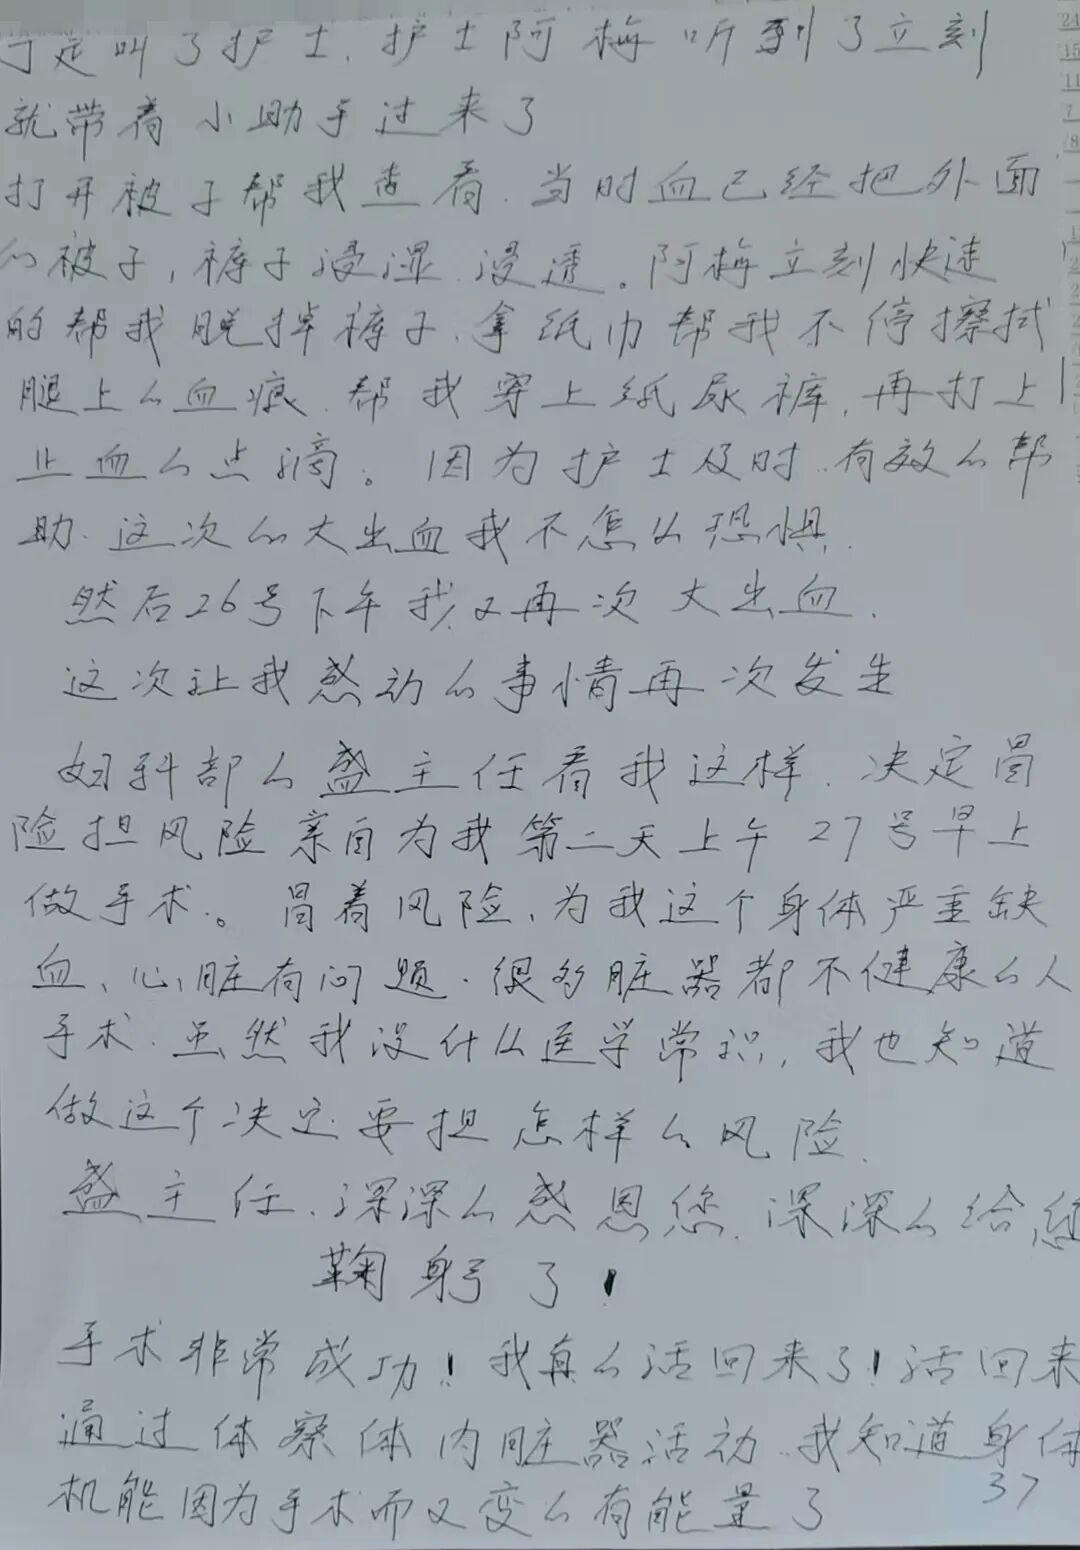 于是叫了护士,护士阿梅听到了立刻
就带着小助手过来了
打开被子帮我查看.当时血已经把外面
的被子,裤子浸湿.浸透。阿梅立刻快速
的帮我脱掉裤子.拿纸巾帮我不停擦拭
腿上的血痕.帮我穿上纸尿裤,再打上
止血的点滴。因为护士及时.有效的帮
助.这次的大出血我不怎么恐惧.
然后26号下午我又再次大出血.
这次让我感动的事情再次发生
妇科部的盛主任看我这样.决定冒
险担风险亲自为我第二天上午27号早上
做手术。冒着风险,为我这个身体严重缺
血、心脏有问题.很多脏器都不健康的人
手术.虽然我没什么医学常识,我也知道
做这个决定要担怎样的风险.
盛主任.深深的感恩您.深深的给您
鞠躬了!
手术非常成功!我真的活回来了!活回来
通过体察体内脏器活动.我知道身体
机能因为手术而又变的有能量了
37